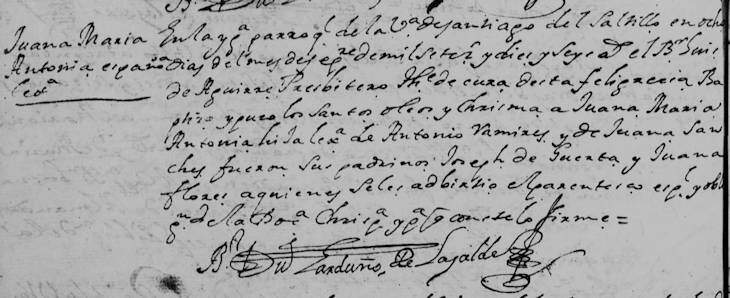 Juana Maria
Antonia española
lexᵃ
En la yGᵃ parroqˡ de la Vᵃ de Santiago del Saltillo en ocho
dias del mes de sepᵉ de mil Setesᵒˢ y dies y Seys aˢ el Bʳ Luis
de Aguirre Presbitero Thᵉ de cura desta feligrecia Ba
ptizo y puso los Santos oleos y Chrisma a Juana Maria
Antonia hija lexᵃ de Antonio Ramires y de Juana San
ches fueron Sus padrinos Joseph de Guerta y Juana
flores a quienes Se les adbirtio el parentesco espˡ y obli
gⁿ de la Docᵃ Chrisᵃ y pᵃ q conste lo firme =
Bʳ Zarduño de